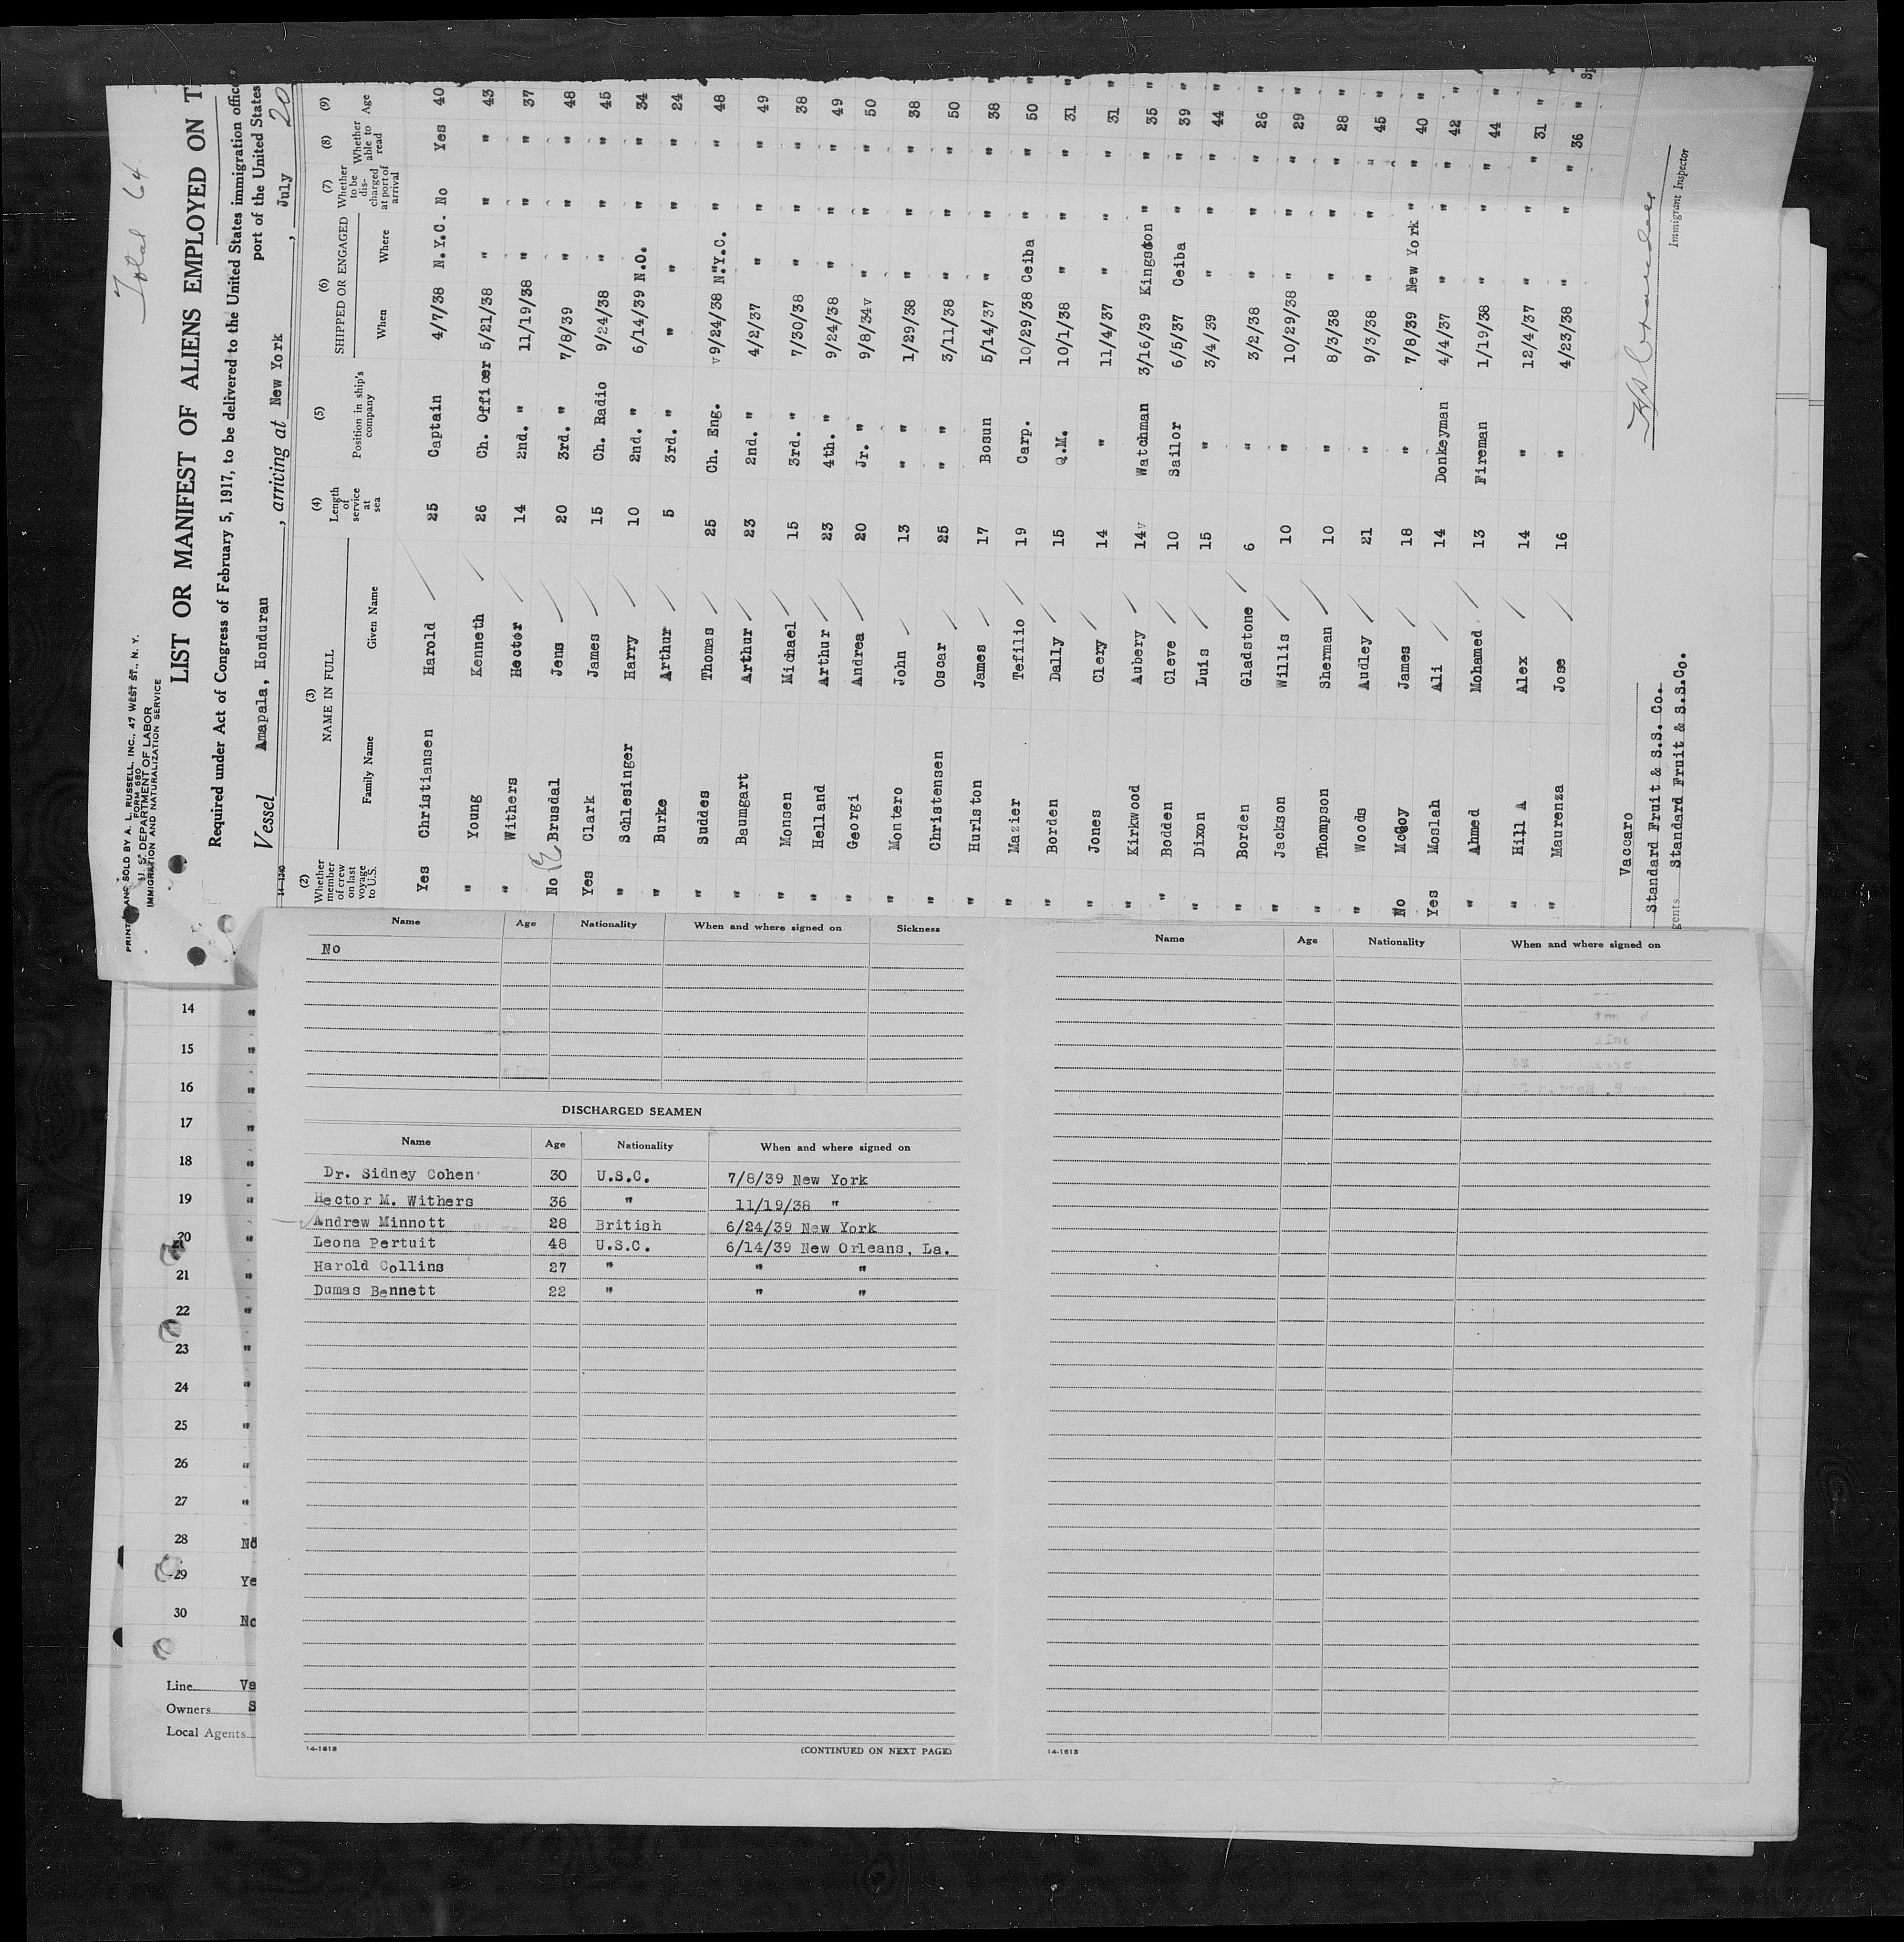 Total 64
PRINTED AND SOLD BY A. L. RUSSELL, INC., 47 WEST ST., N. Y.
FORM 680
U. S. DEPARTMENT OF LABOR
IMMIGRATION AND NATURALIZATION SERVICE
LIST OR MANIFEST OF ALIENS EMPLOYED ON T
Required under Act of Congress of February 5, 1917, to be delivered to the United States immigration office
port of the United States
Vessel Amapala, Honduran, arriving at New York, July 20
14-1240
(2) Whether member of crew on last voyage to U.S. (3) NAME IN FULL Family Name Given Name (4) Length of service at sea (5) Position in ship's company (6) SHIPPED OR ENGAGED When Where (7) Whether to be discharged at port of arrival (8) Whether able to read (9) Age
Yes Christiansen Harold 25 Captain 4/7/38 N.Y.C. No Yes 40
" Young Kenneth 26 Ch. Officer 5/21/38 " " " 43
" Withers Hector 14 2nd. " 11/19/38 " " " 37
No Brusdal Jens 20 3rd. " 7/8/39 " " " 48
Yes Clark James 15 Ch. Radio 9/24/38 " " " 45
" Schlesinger Harry 10 2nd. " 6/14/39 N.O. " " 34
" Burke Arthur 5 3rd. " " " " " 24
" Suddes Thomas 25 Ch. Eng. 9/24/38 N.Y.C. " " 48
" Baumgart Arthur 23 2nd. " 4/2/37 " " " 49
" Monsen Michael 15 3rd. " 7/30/38 " " " 38
" Helland Arthur 23 4th. " 9/24/38 " " " 49
" Georgi Andrea 20 Jr. " 9/8/34 " " " 50
" Montero John 13 " " 1/29/38 " " " 38
" Christensen Oscar 25 " " 3/11/38 " " " 50
" Hurlston James 17 Bosun 5/14/37 " " " 38
" Mazier Tefilio 19 Carp. 10/29/38 Ceiba " " 50
" Borden Dally 15 Q.M. 10/1/38 " " " 31
" Jones Clery 14 " 11/4/37 " " " 31
" Kirkwood Aubery 14 Watchman 3/16/39 Kingston " " 35
" Bodden Cleve 10 Sailor 6/5/37 Ceiba " " 39
" Dixon Luis 15 " 3/4/39 " " " 44
" Borden Gladstone 6 " 3/2/38 " " " 26
" Jackson Willis 10 " 10/29/38 " " " 29
" Thompson Sherman 10 " 8/3/38 " " " 28
" Woods Audley 21 " 9/3/38 " " " 45
No McCoy James 18 " 7/8/39 New York " " 40
Yes Moslah Ali 14 Donkeyman 4/4/37 " " " 42
" Ahmed Mohamed 13 Fireman 1/19/38 " " " 44
" Hill A Alex 14 " 12/4/37 " " " 31
" Maurenza Jose 16 " 4/23/38 " " " 36
Sp
Vaccaro
Standard Fruit & S.S. Co.
gents Standard Fruit & S.S.Co.
Immigrant Inspector
14 "
15 "
16 "
17 "
18 "
19 "
20 "
21 "
22 "
23 "
24 "
25 "
26 "
27 "
28 No
29 Ye
30 No
Line Va
Owners S
Local Agents
Name Age Nationality When and where signed on Sickness
No
DISCHARGED SEAMEN
Name Age Nationality When and where signed on
Dr. Sidney Cohen 30 U.S.C. 7/8/39 New York
Hector M. Withers 36 " 11/19/38 "
Andrew Minnott 28 British 6/24/39 New York
Leona Pertuit 48 U.S.C. 6/14/39 New Orleans, La.
Harold Collins 27 " " "
Dumas Bennett 22 " " "
14-1613
(CONTINUED ON NEXT PAGE)
Name Age Nationality When and where signed on
14-1613